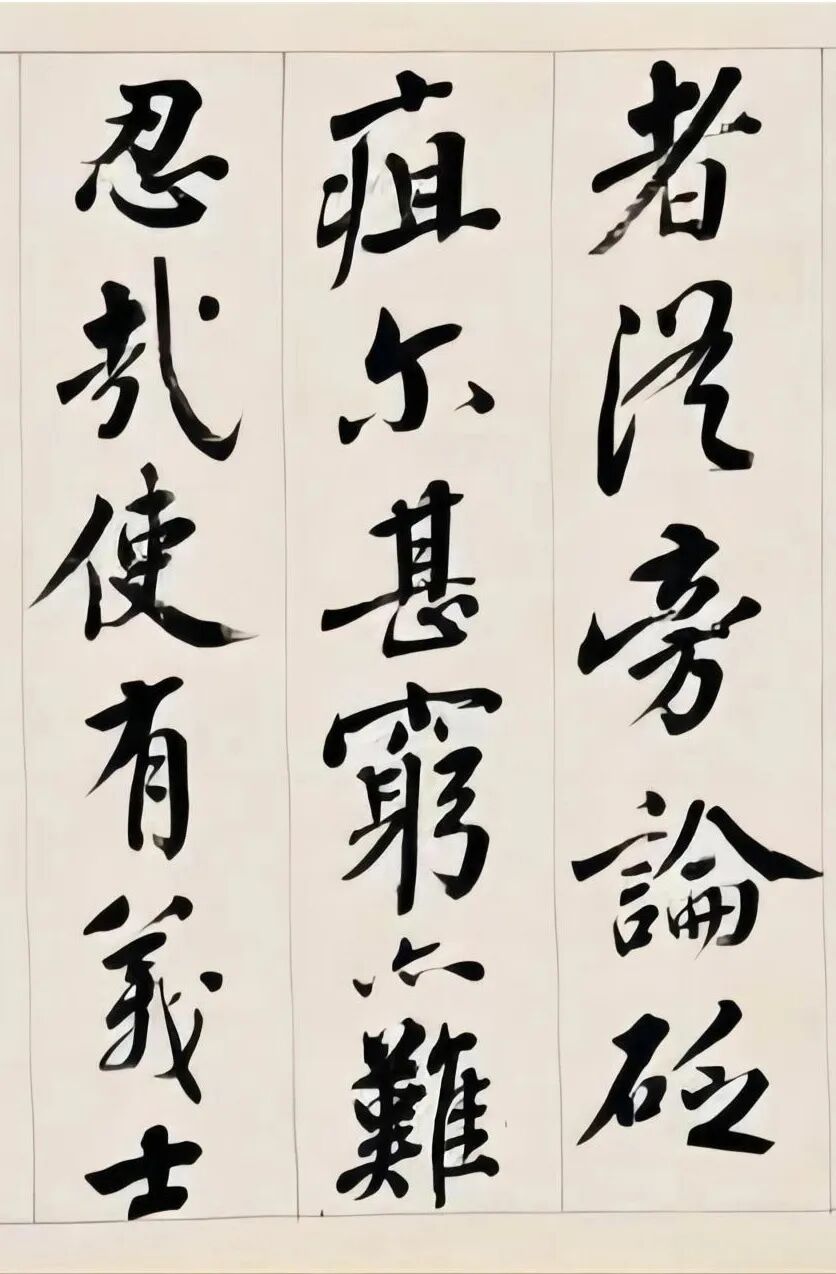 者從旁論砭
疽尔甚窮亦難
忍哉使有義士